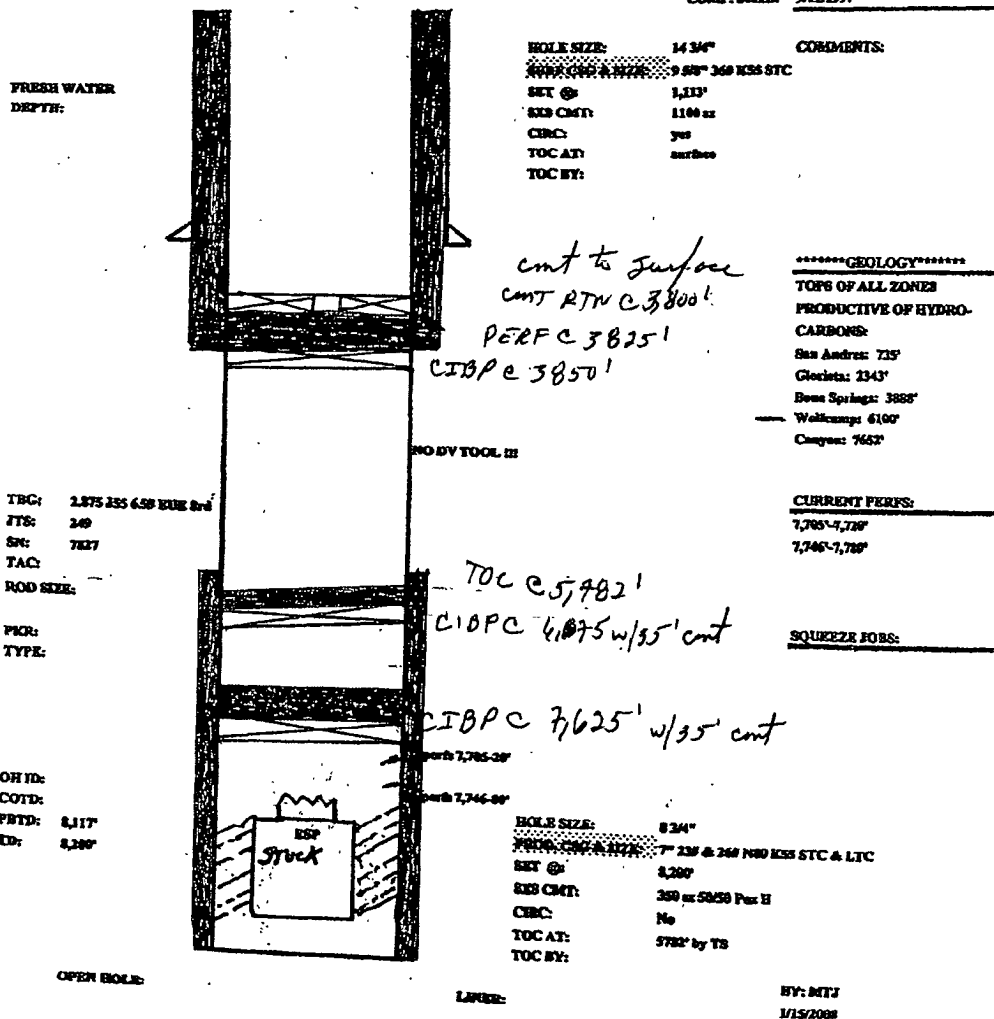 HOLE SIZE: 14 3/4"
SURF CSG & SIZE: 9 5/8" 36# K55 STC
SET @: 1,113'
SXS CMT: 1100 sx
CIRC: yes
TOC AT: surface
TOC BY:
COMMENTS:
FRESH WATER
DEPTH:
cmt to surface
CMT RTN @ 3,800'
PERF @ 3825'
CIBP @ 3850'
*******GEOLOGY*******
TOPS OF ALL ZONES
PRODUCTIVE OF HYDRO-
CARBONS:
San Andres: 725'
Glorieta: 2343'
Bone Springs: 3888'
Wolfcamp: 6100'
Canyon: 7652'
NO DV TOOL !!!
TBG: 2.875 J55 6.5# EUE 8rd
JTS: 249
SN: 7827
TAC:
ROD SIZE:
PKR:
TYPE:
CURRENT PERFS:
7,705'-7,720'
7,746'-7,780'
SQUEEZE JOBS:
TOC @ 5,782'
CIBP @ w/35' cmt
CIBP @ 7,625' w/35' cmt
perfs 7,705-20'
perfs 7,746-80'
OH ID:
COTD:
PBTD: 8,117'
TD: 8,200'
ESP
STUCK
HOLE SIZE: 8 3/4"
PROD. CSG & SIZE: 7" 23# & 26# N80 K55 STC & LTC
SET @: 8,200'
SXS CMT: 350 sx 50/50 Poz H
CIRC: No
TOC AT: 5782' by TS
TOC BY:
OPEN HOLE:
LINER:
BY: MTJ
1/15/2008